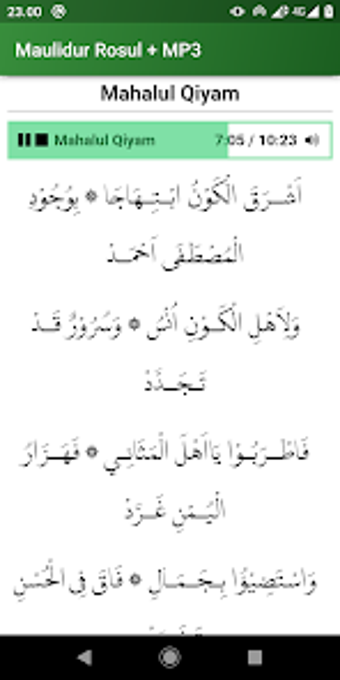 23.00
4G
Maulidur Rosul + MP3
Mahalul Qiyam
Mahalul Qiyam 7:05 / 10:23
اَشْـرَقَ الْكَوْنُ ابْـتِـهَاجَا ۞ بِوُجُوْدِ
الْمُصْطَفَى اَحْمَـدْ
وَلِاَهْلِ الْكَـوْنِ اُنْسٌ ۞ وَسُرُوْرٌ قَـدْ
تَـجَـدَّدْ
فَاطْـرَبُـوْا يَااَهْلَ الْمَثَانِـي ۞ فَهَـزَارُ
الْيُـمْنِ غَـرَّدْ
وَاسْتَضِيْؤُا بِـجَـمَـالٍ ۞ فَاقَ فِى الْحُسْنِ